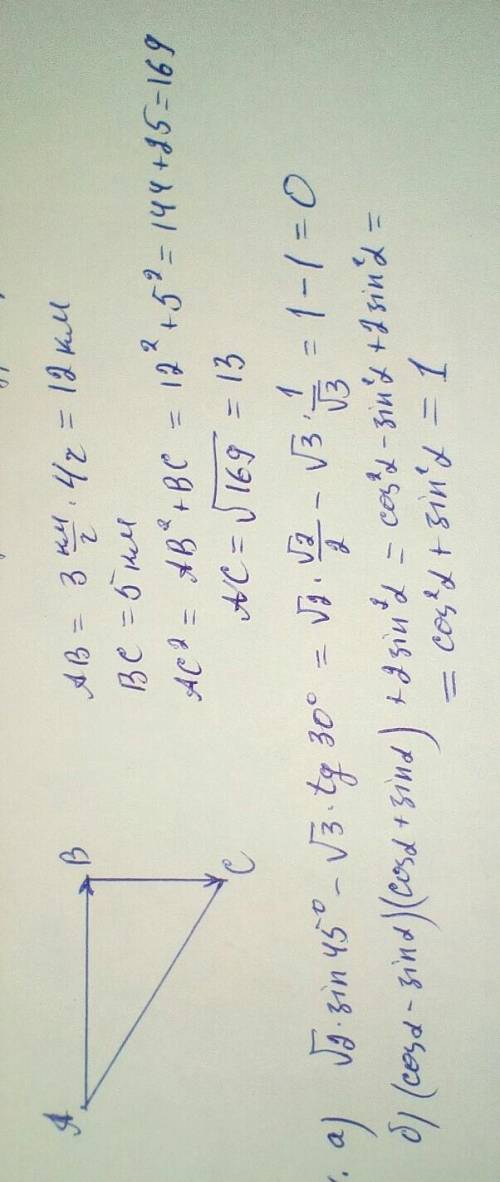 A B
C
AB = 3 км/г · 4г = 12 км
BC = 5 км
AC² = AB² + BC = 12² + 5² = 144 + 25 = 169
AC = √169 = 13
. а) √2 · sin 45° − √3 · tg 30° = √2 · √2/2 − √3 · 1/√3 = 1 − 1 = 0
б) (cosα − sinα)(cosα + sinα) + 2sin²α = cos²α − sin²α + 2sin²α =
= cos²α + sin²α = 1